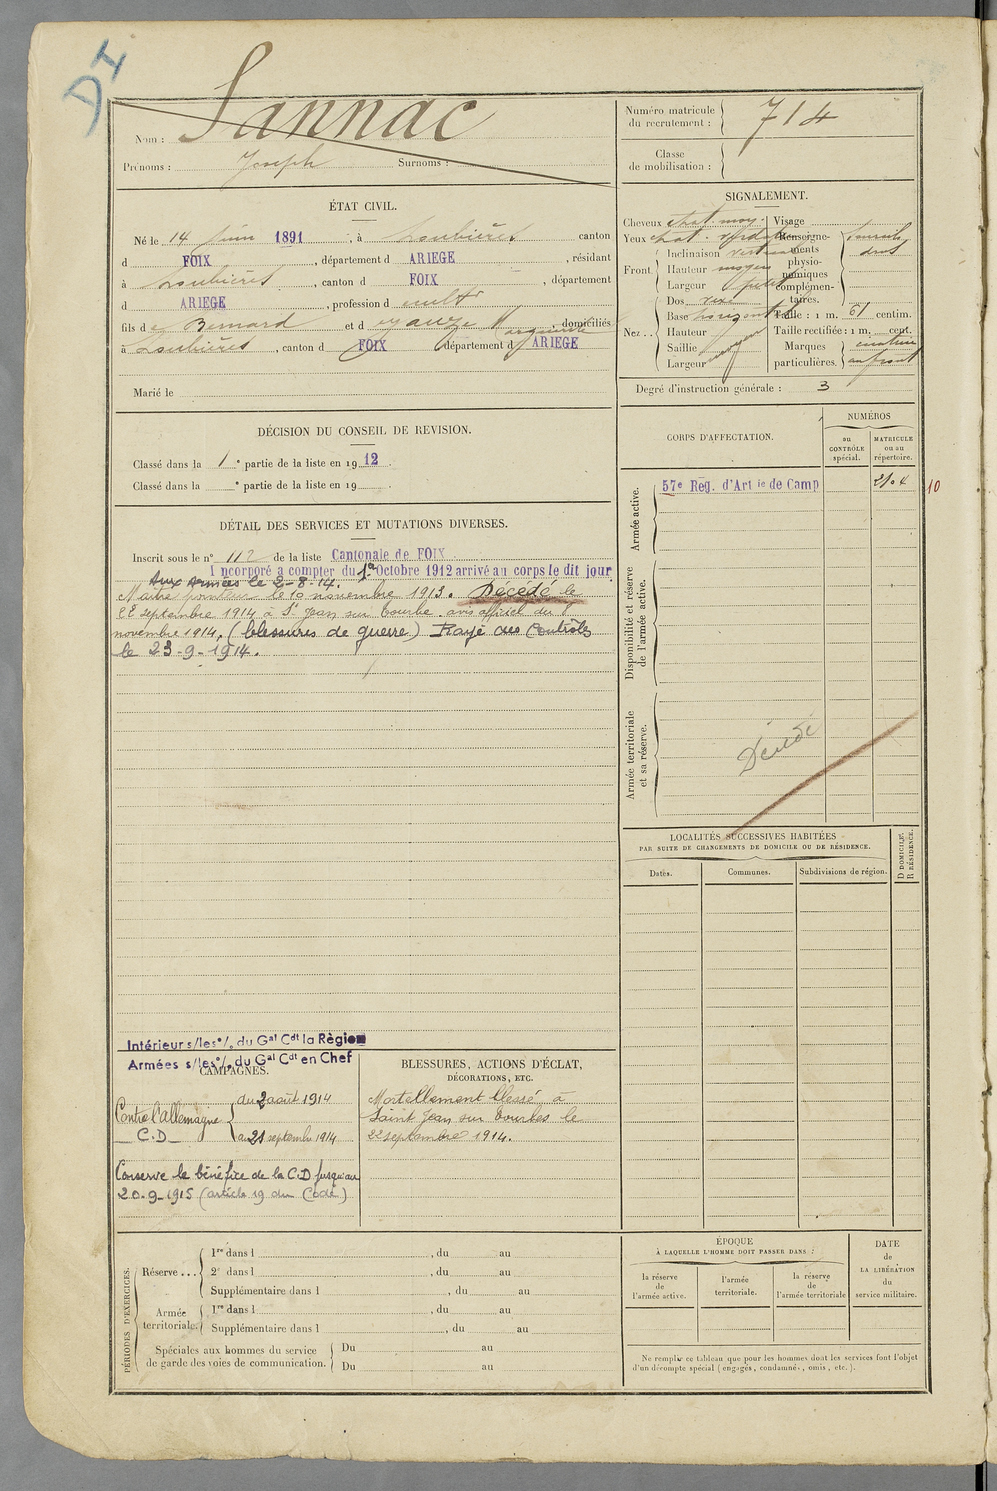 DI
Nom : Sannac
Prénoms : Joseph Surnoms :
Numéro matricule du recrutement : 714
Classe de mobilisation :
ÉTAT CIVIL.
Né le 14 juin 1891, à Loubières canton
d FOIX, département d ARIEGE, résidant
à Loubières, canton d FOIX, département
d ARIEGE, profession de cultr
fils de Bernard et d Marguerite domiciliés
à Loubières, canton d FOIX département d ARIEGE
Marié le
SIGNALEMENT.
Cheveux chat. moy. Visage
Yeux chat. verdâtre
Renseignements physionomiques complémentaires. sourcils droits
Front Inclinaison verticale
Hauteur moyen
Largeur petite
Nez Dos vexe
Base horizontal
Hauteur
Saillie moyen
Largeur
Taille : 1 m. 61 centim.
Taille rectifiée : 1 m. cent.
Marques particulières. cicatrice au front
Degré d'instruction générale : 3
DÉCISION DU CONSEIL DE REVISION.
Classé dans la 1e partie de la liste en 1912.
Classé dans la e partie de la liste en 19 .
CORPS D'AFFECTATION.
NUMÉROS
au CONTRÔLE spécial.
MATRICULE ou au répertoire.
Armée active.
57e Reg. d'Artie de Camp 2104 10
Disponibilité et réserve de l'armée active.
Armée territoriale et sa réserve.
Décédé
DÉTAIL DES SERVICES ET MUTATIONS DIVERSES.
Inscrit sous le n° 112 de la liste Cantonale de FOIX
Incorporé a compter du 1er Octobre 1912 arrivé au corps le dit jour
Aux Armées le 2-8-14.
Maître pointeur le 10 novembre 1913. Décédé le
22 septembre 1914 à St Jean sur Tourbe avis officiel du 7
novembre 1914. (blessures de guerre) Rayé des Contrôles
le 23-9-1914.
LOCALITÉS SUCCESSIVES HABITÉES
PAR SUITE DE CHANGEMENTS DE DOMICILE OU DE RÉSIDENCE.
Dates. Communes. Subdivisions de région. D DOMICILE. R RÉSIDENCE.
Intérieur s/les °/. du Gal Cdt la Règion
Armées s/les °/. du Gal Cdt en Chef
CAMPAGNES.
Contre l'allemagne C.D
du 2 août 1914
au 21 septembre 1914
Conserve le bénéfice de la C.D jusqu'au
20-9-1915 (article 19 du Code)
BLESSURES, ACTIONS D'ÉCLAT,
DÉCORATIONS, ETC.
Mortellement blessé à
Saint Jean sur Tourbes le
22 septembre 1914.
PÉRIODES D'EXERCICES.
Réserve... 1re dans l , du au
2e dans l , du au
Supplémentaire dans l , du au
Armée territoriale. 1re dans l , du au
Supplémentaire dans l , du au
Spéciales aux hommes du service de garde des voies de communication. Du au
Du au
ÉPOQUE
À LAQUELLE L'HOMME DOIT PASSER DANS :
la réserve de l'armée active.
l'armée territoriale.
la réserve de l'armée territoriale
DATE de LA LIBÉRATION du service militaire.
Ne remplir ce tableau que pour les hommes dont les services font l'objet
d'un décompte spécial (engagés, condamnés, omis, etc.).